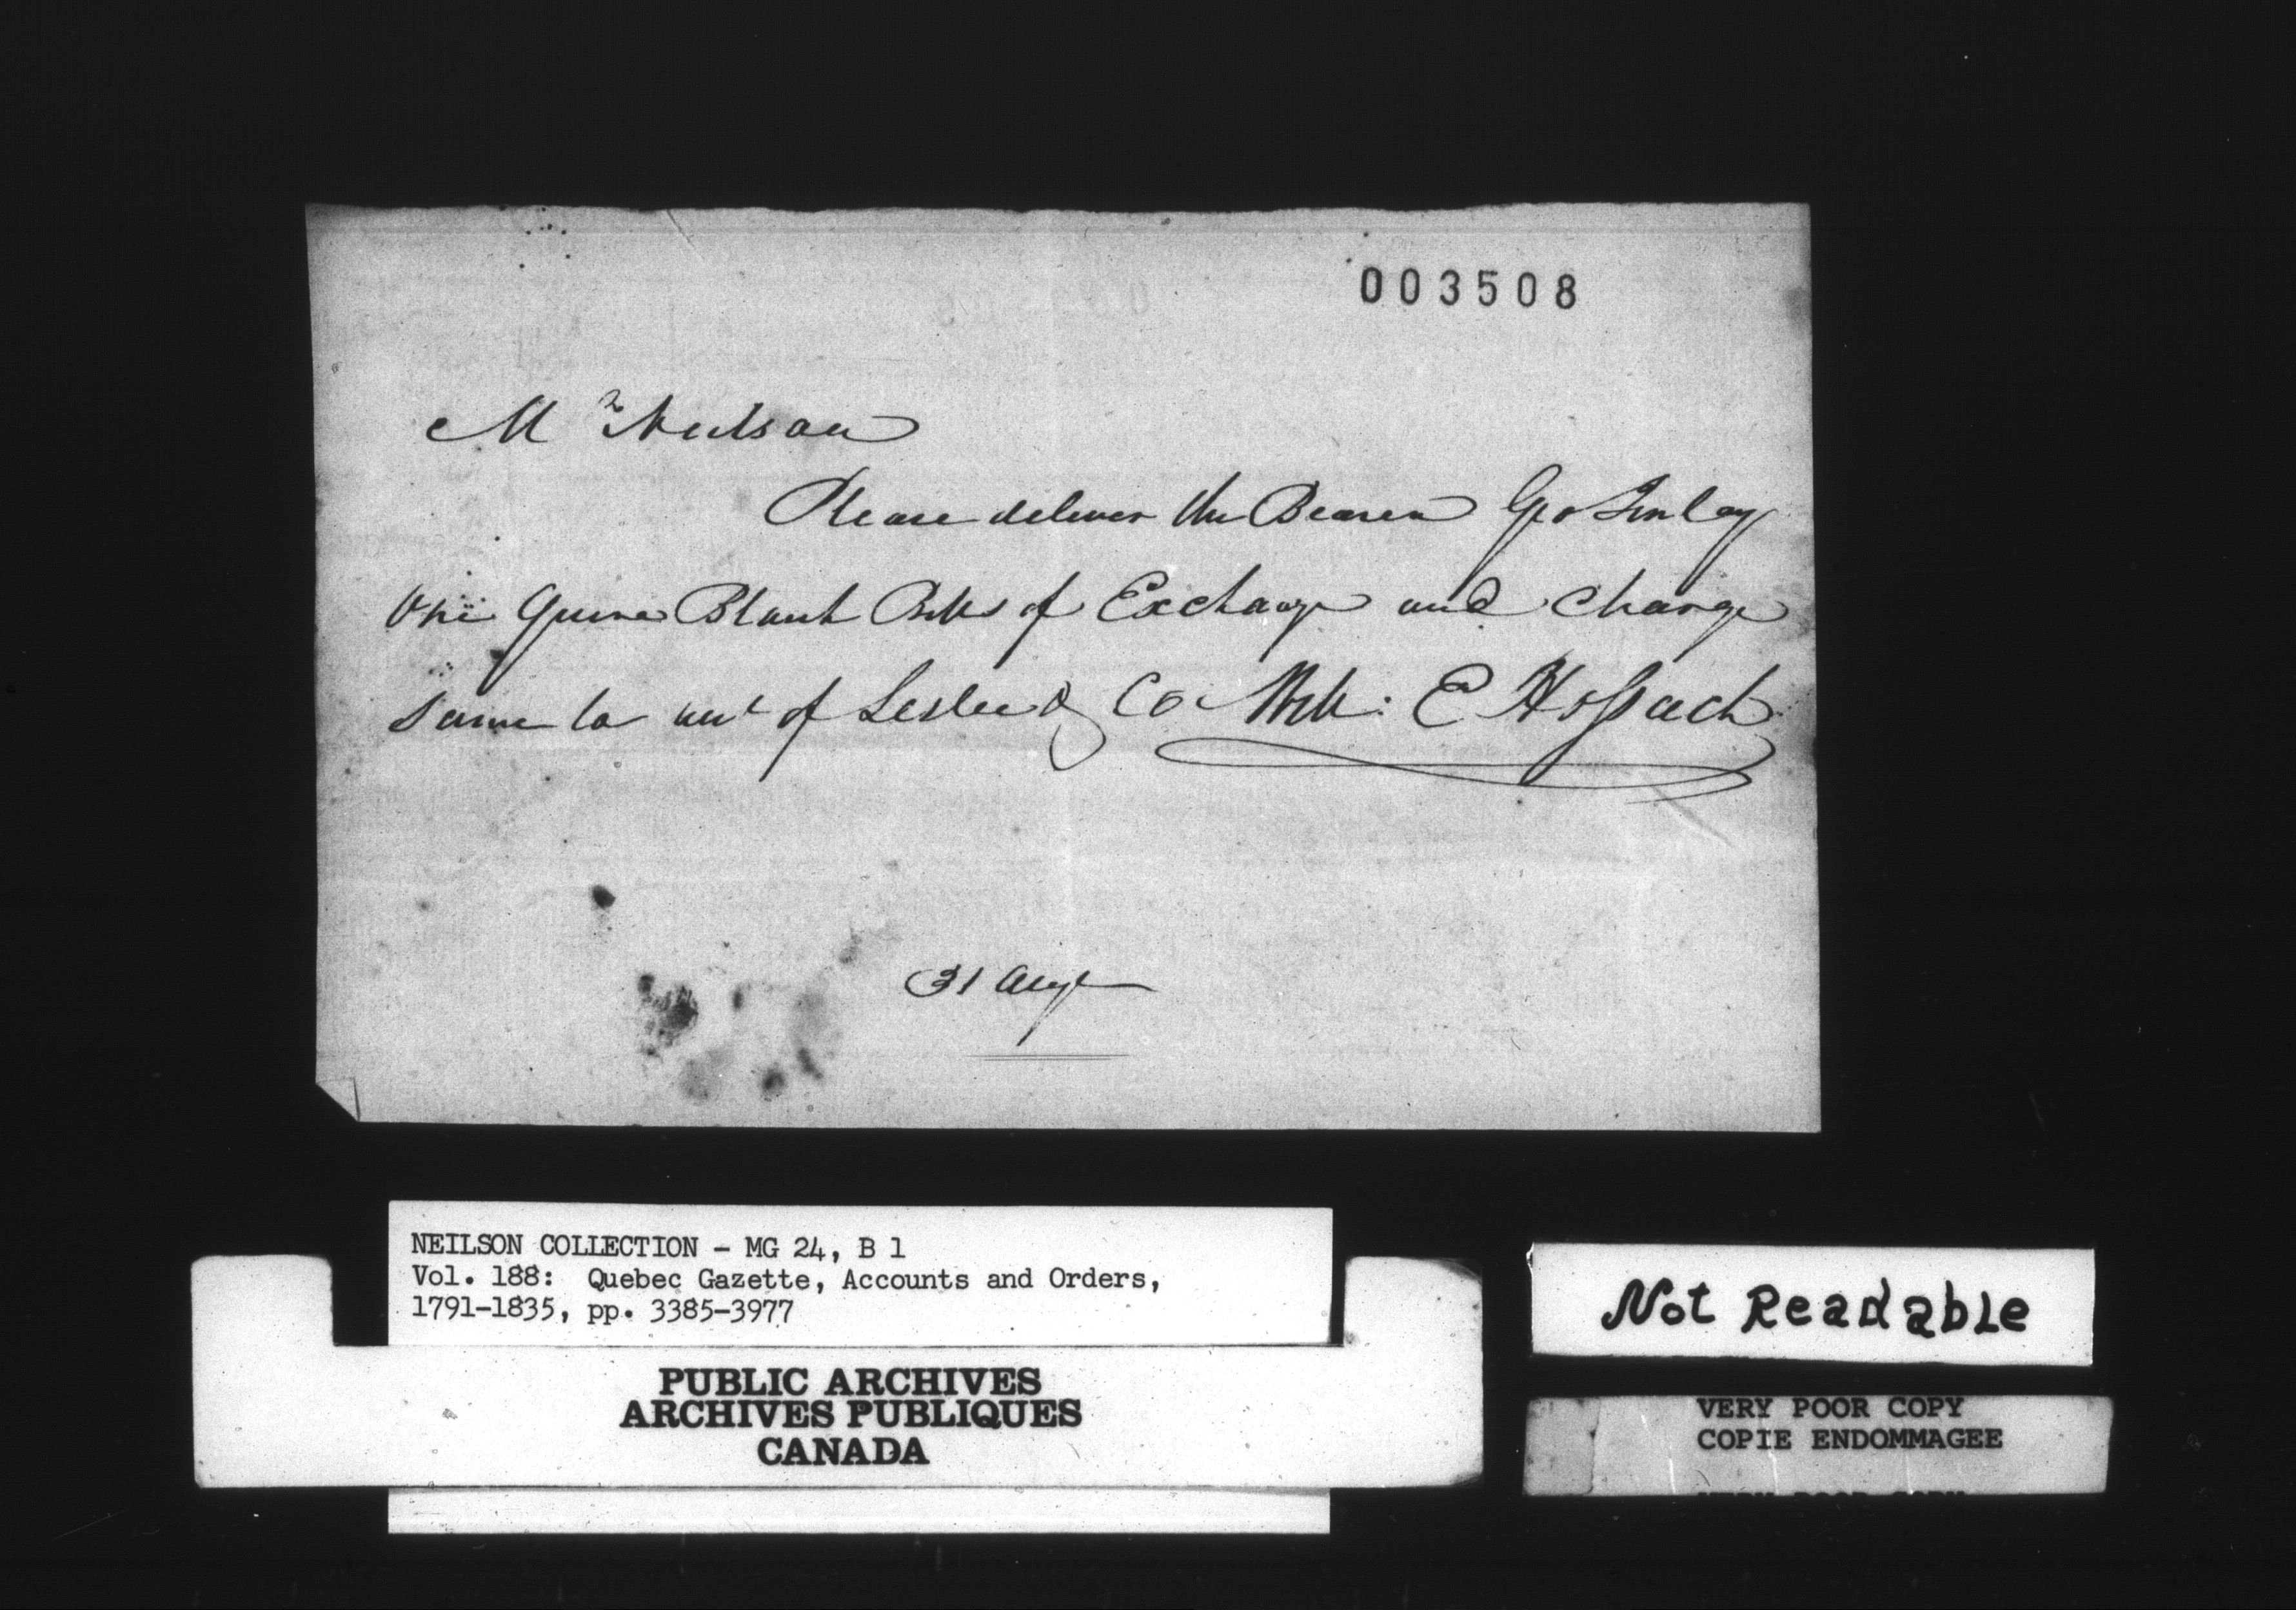 003508
Mr Neilson
Please deliver the Bearer Geo Finlay
One Quire Blank Bills of Exchange and Charge
same to acct of Leslie & Co E Hossack
31 Augt
NEILSON COLLECTION - MG 24, B 1
Vol. 188: Quebec Gazette, Accounts and Orders,
1791-1835, pp. 3385-3977
PUBLIC ARCHIVES
ARCHIVES PUBLIQUES
CANADA
Not Readable
VERY POOR COPY
COPIE ENDOMMAGEE
VERY POOR COPY